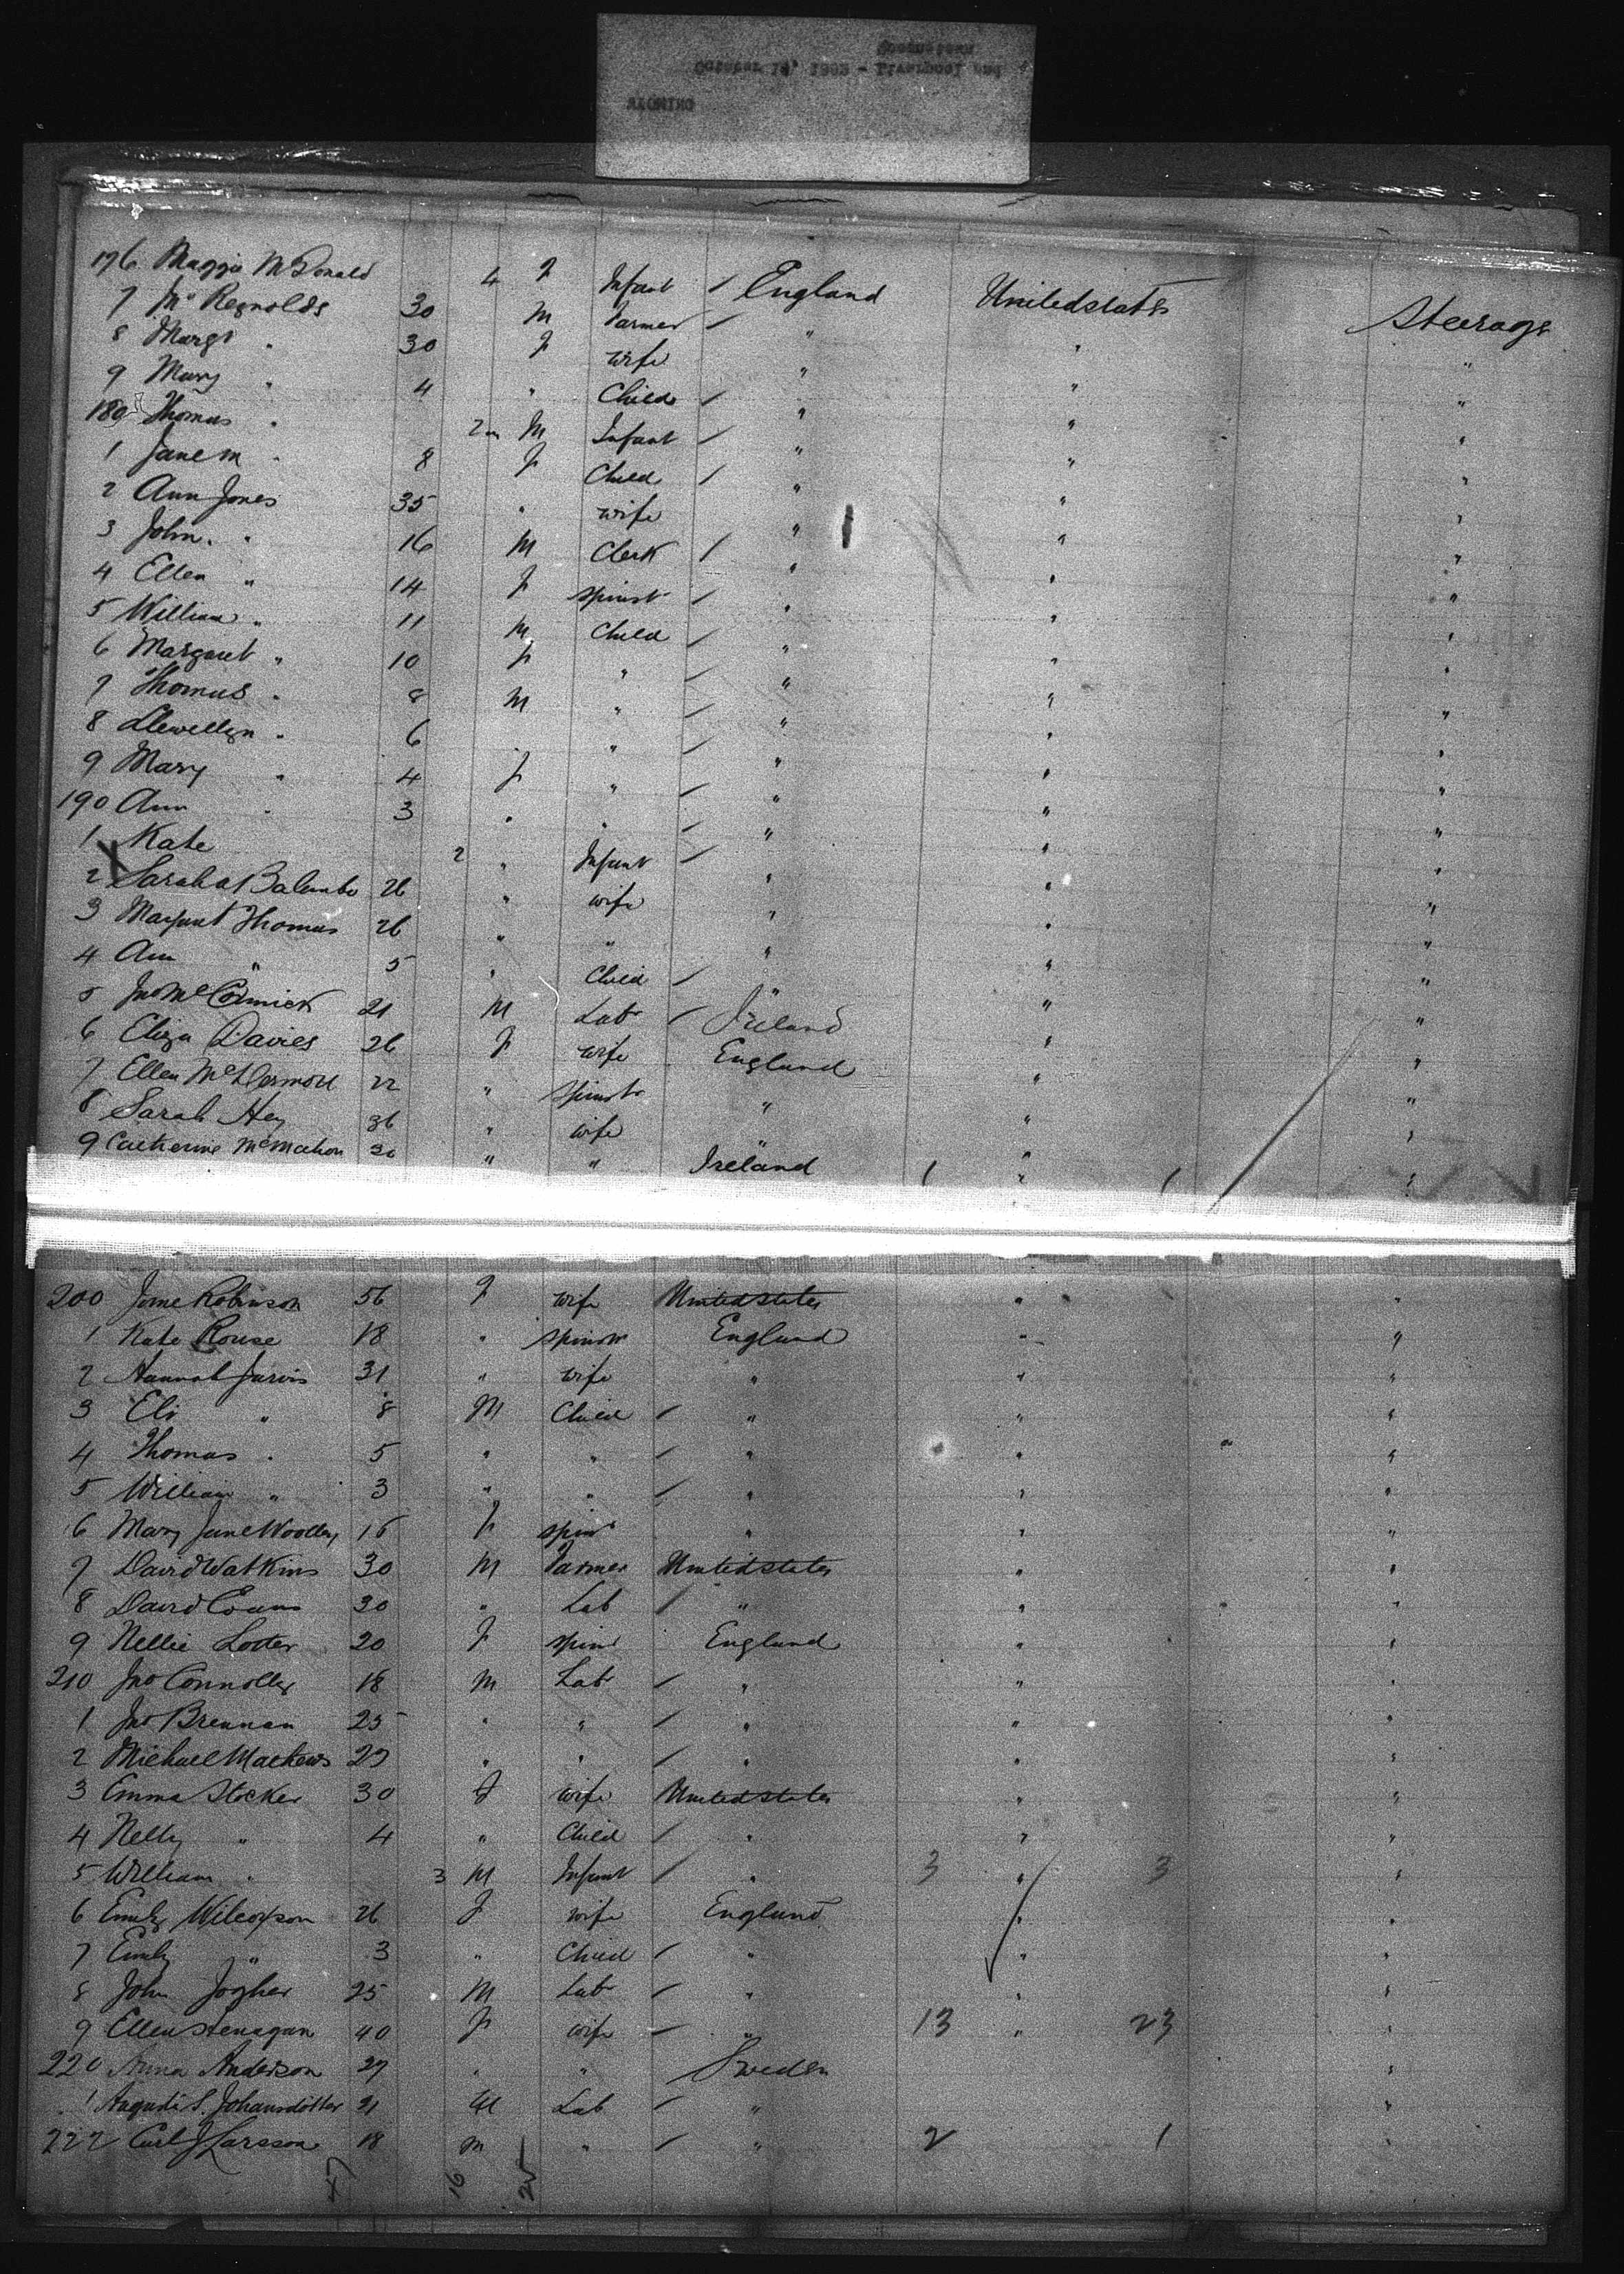 WYOMING
October 14, 1893 - Liverpool and
Queenstown
176 Maggie McDonald 4 F Infant / England United states Steerage
7 Jno Reynolds 30 M Farmer / " " "
8 Margt " 30 F wife " " "
9 Mary " 4 " Child / " " "
180 Thomas " 2m M Infant / " " "
1 Jane M " 8 F Child / " " "
2 Ann Jones 35 " wife " " "
3 John " 16 M Clerk / " " "
4 Ellen " 14 F spinst / " " "
5 William " 11 M Child / " " "
6 Margaret " 10 F " / " " "
7 Thomas " 8 M " / " " "
8 Llewellyn " 6 " / " " "
9 Mary " 4 F " / " " "
190 Ann " 3 " " / " " "
1 Kate 2 " Infant / " " "
2 Sarah A 26 " wife " " "
3 Margaret Thomas 26 " " " " "
4 Ann " 5 " Child / " " "
5 Jno McCormick 21 M Lab / Ireland " "
6 Eliza Davies 26 F wife England " "
7 Ellen McDermott 22 " Spinstr " " "
8 Sarah Hey 36 " wife " " "
9 Catherine McMahon 30 " " Ireland 1 " 1 "
200 Jane Robinson 56 F wife United states " "
1 Kate Rouse 18 " spinstr England " "
2 Hannah Jarvis 31 " wife " " "
3 Eli " 8 M Child / " " "
4 Thomas " 5 " " / " " "
5 William " 3 " " / " " "
6 Mary Jane Woolley 16 F spin " " "
7 David Watkins 30 M Farmer United states " "
8 David Evans 30 " Lab / " " "
9 Nellie 20 F spin England " "
210 Jno Connolly 18 M Lab / " " "
1 Jno Brennan 25 " " / " " "
2 Michael Mathews 27 " " / " " "
3 Emma Stocker 30 F wife United states " "
4 Nelly " 4 " Child / " " "
5 William " 3 M Infant / " 3 " 3 "
6 Emily Wilcoxson 26 F wife England " "
7 Emily " 3 " Child / " " "
8 John 25 M Lab / " " "
9 Ellen 40 F wife / " 13 " 23 "
220 Anna Anderson 27 " " Sweden "
1 S. Johansdotter 21 M Lab / " "
222 Carl J Larsson 18 m " / " 2 1 "
47 16 25